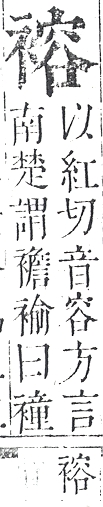 褣
以紅切音容方言
南楚謂襜褕曰䘪
褣